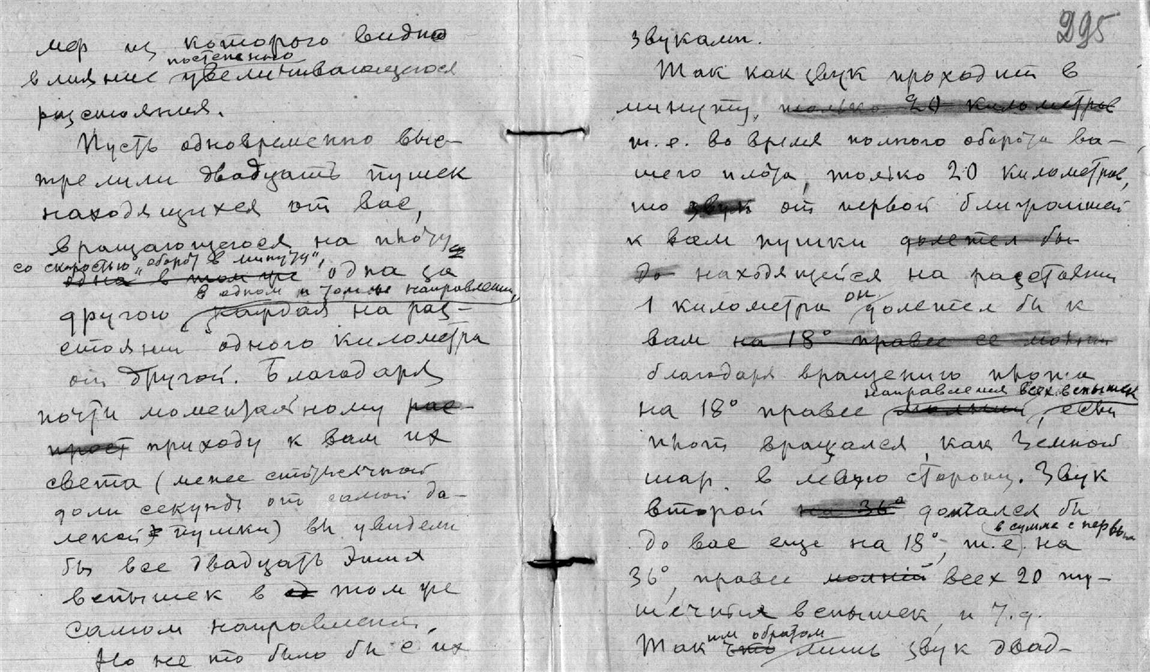 мер из которого видно
постепенно
влияние увеличивающегося
разстояния.
Пусть одновременно выс-
трелили двадцать пушек
находящихся от вас,
вращающегося на плоту
со скоростью "оборот в минуту",
одна в том же одна за
в одном и том же направлении,
другою каждая на раз-
стоянии одного километра
от другой. Благодаря
почти моментальному рас-
прост приходу к вам их
света (менее стотысячной
доли секунды от самой да-
лекой пушки) вы увидели
бы все двадцать
вспышек в том же
самом направлении.
Но не то было бы с их
295
звуками.
Так как звук проходит в
минуту, только 20 километров
т.е. во время полного оборота ва-
шего плота, только 20 километров,
то звук от первой ближайшей
к вам пушки долетел бы
до находящейся на разстоянии
1 километра он долетел бы к
вам на 18° правее ее молнии
благодаря вращению плота
направления всех вспышек
на 18° правее молнии, если
плот вращался, как Земной
шар в левую сторону. Звук
второй на 36° домчался бы
в сумме с первым
до вас еще на 18°, т.е. на
36°, правее молний всех 20 пу-
шечных вспышек, и т.д.
им образом
Так что лишь звук двад-